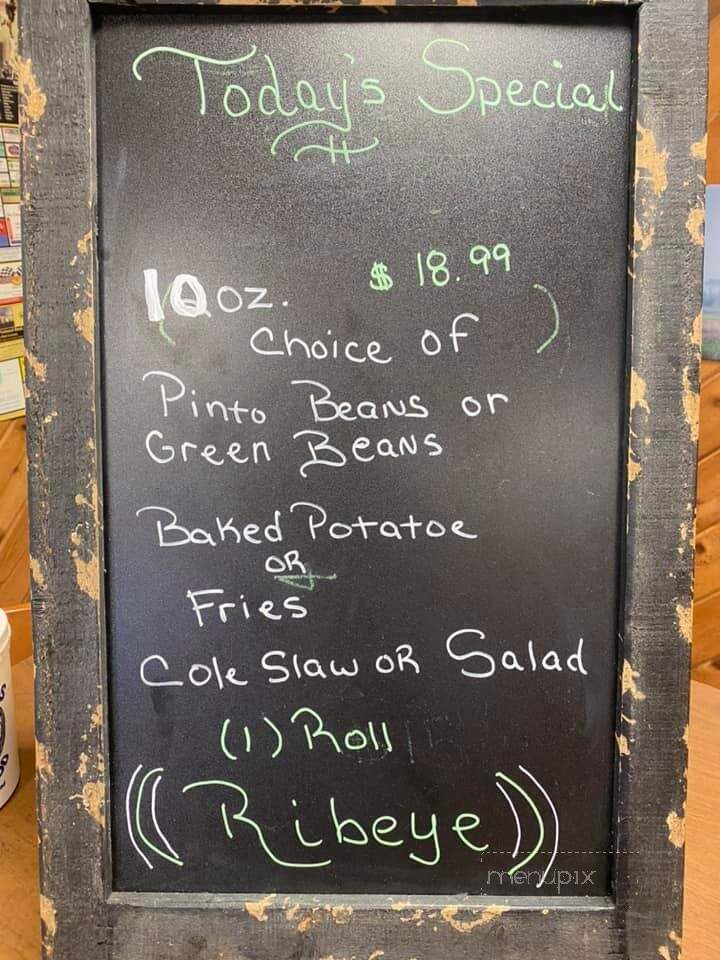 Today's Special
$ 18.99
10 oz.
Choice of
Pinto Beans or
Green Beans
Baked Potatoe
OR
Fries
Cole Slaw OR Salad
(1) Roll
((Ribeye))
menupix